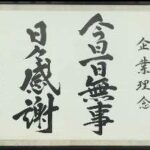 企業理念
今日一日無事
日々感謝